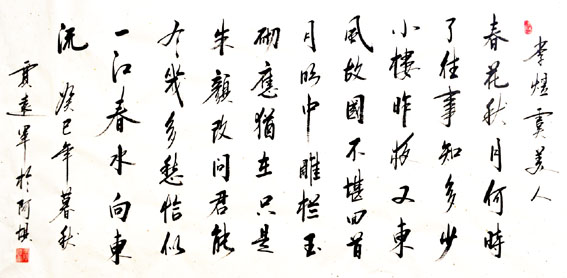 李煜虞美人
春花秋月何時
了往事知多少
小樓昨夜又東
風故國不堪回首
月明中雕栏玉
砌應猶在只是
朱顏改問君能
有幾多愁恰似
一江春水向東
流 癸巳年暮秋
賈遠軍於阿旗